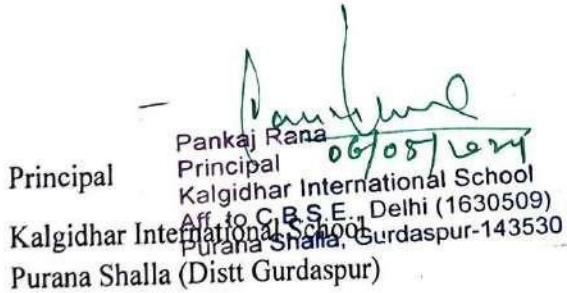 Pankaj Rana
06/05/2024
Principal
Kalgidhar International School
Aff. to C.B.S.E., Delhi (1630509)
Purana Shalla, Gurdaspur-143530
Principal
Kalgidhar International School
Purana Shalla (Distt Gurdaspur)